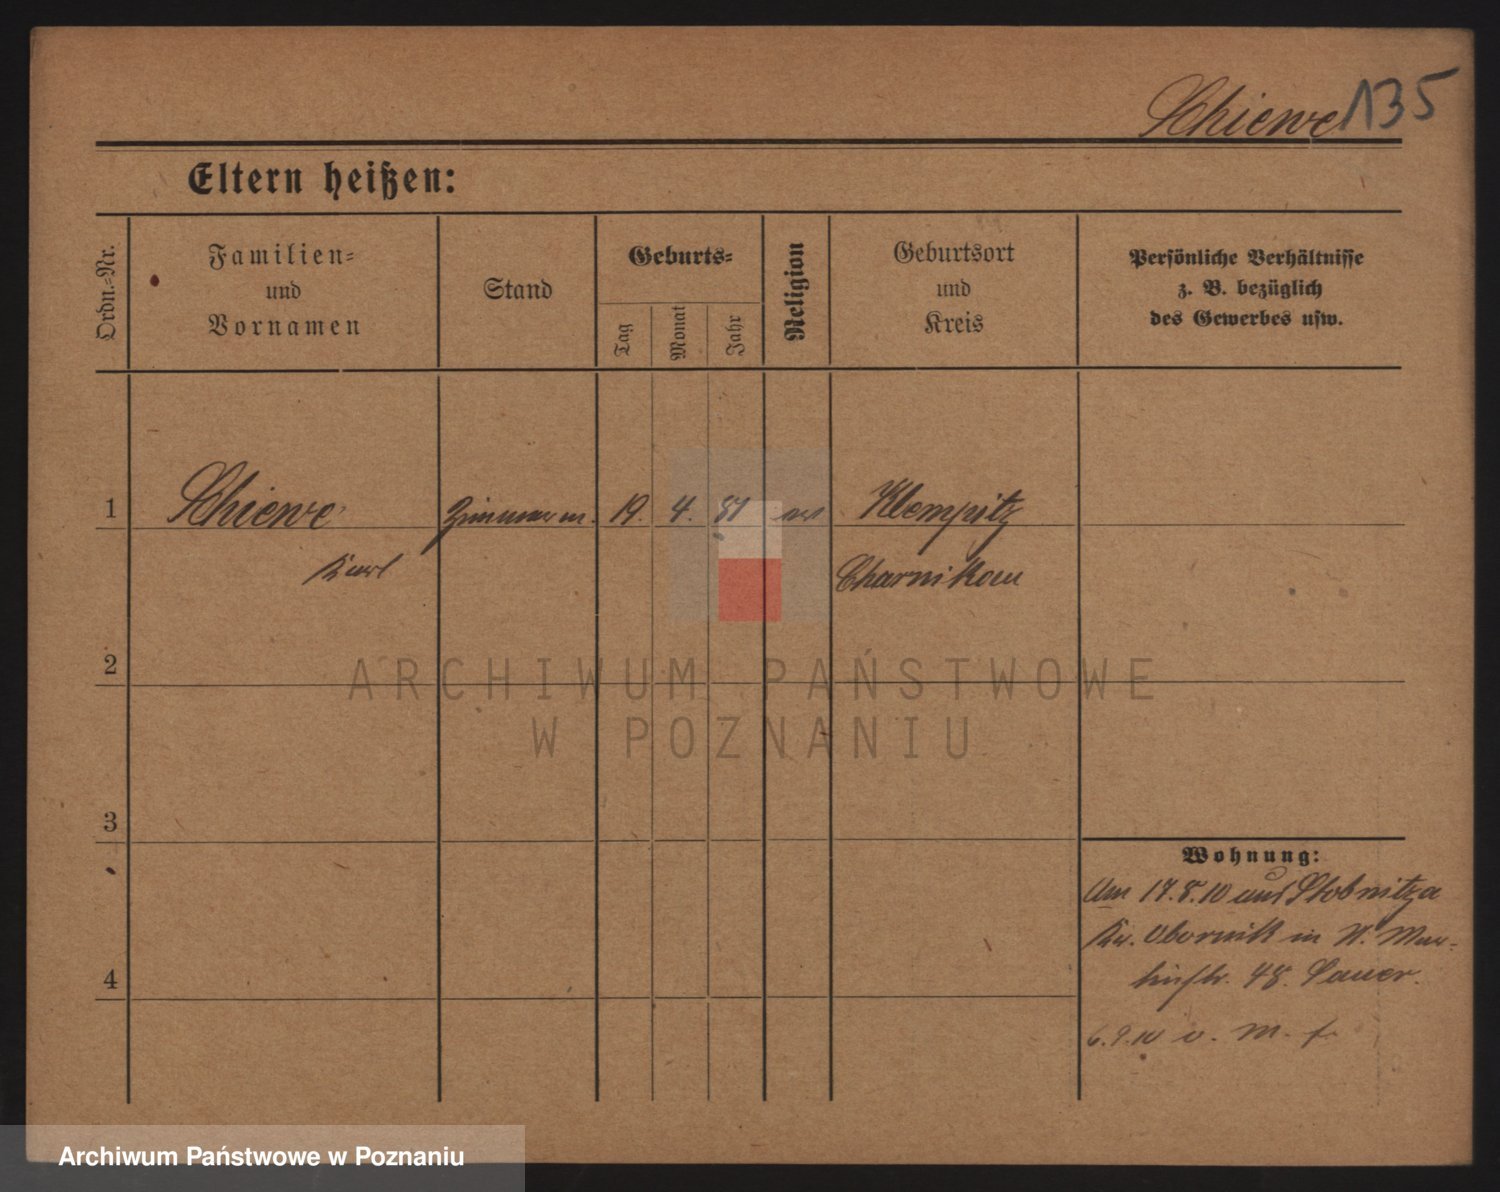 Schiewe 135
Eltern heißen:
Ordn.-Nr.
Familien-
und
Vornamen
Stand
Geburts-
Tag
Monat
Jahr
Religion
Geburtsort
und
Kreis
Persönliche Verhältnisse
z. B. bezüglich
des Gewerbes usw.
1 Schiewe Zimmerm. 19. 4. 81 ev Klempitz
Karl Charnikau
2
3
4
Wohnung:
Am 17.8.10 aus Stobnitza
Kr. Obornik in W.
48. Sauer.
6.9.10 v. M. f.
ARCHIWUM PAŃSTWOWE
W POZNANIU
Archiwum Państwowe w Poznaniu